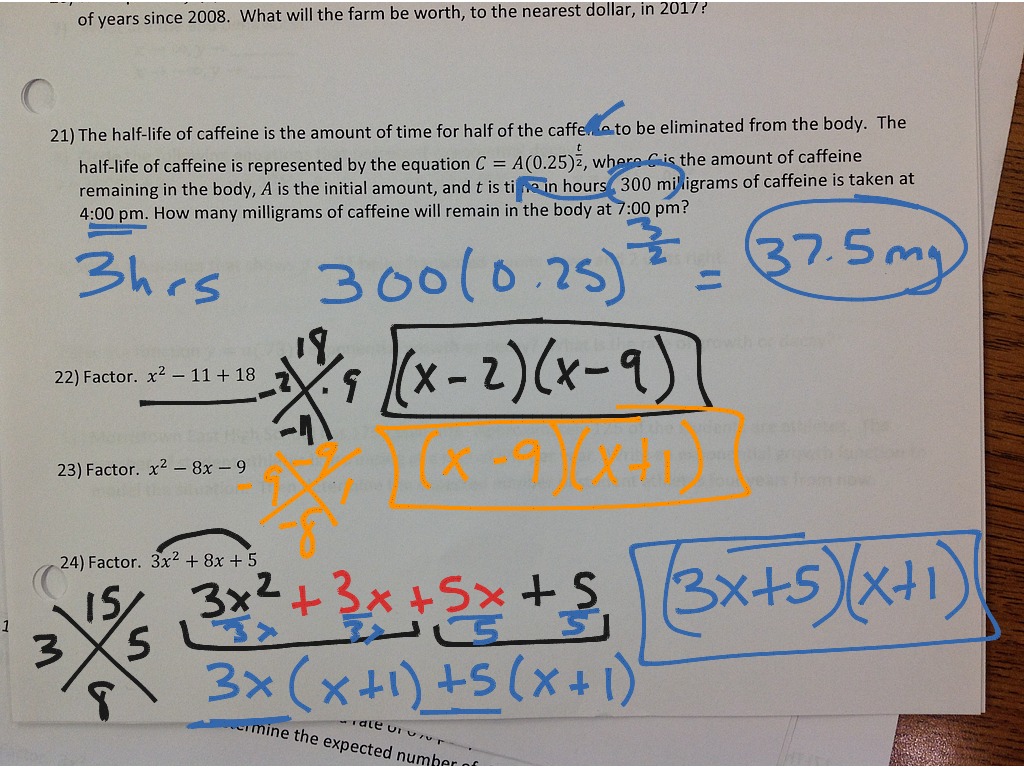 of years since 2008. What will the farm be worth, to the nearest dollar, in 2017?
21) The half-life of caffeine is the amount of time for half of the caffeine to be eliminated from the body. The
half-life of caffeine is represented by the equation C = A(0.25)^(t/2), where C is the amount of caffeine
remaining in the body, A is the initial amount, and t is time in hours. 300 milligrams of caffeine is taken at
4:00 pm. How many milligrams of caffeine will remain in the body at 7:00 pm?
3hrs 300(0.25)^(3/2) = 37.5mg
18
22) Factor. x² – 11 + 18 -2 -9 (x-2)(x-9)
-11
-9
23) Factor. x² – 8x – 9 -9 1 (x-9)(x+1)
-8
24) Factor. 3x² + 8x + 5
15 3x² + 3x + 5x + 5 (3x+5)(x+1)
3 5 3x 3x 5 5
8 3x(x+1)+5(x+1)
the expected number of